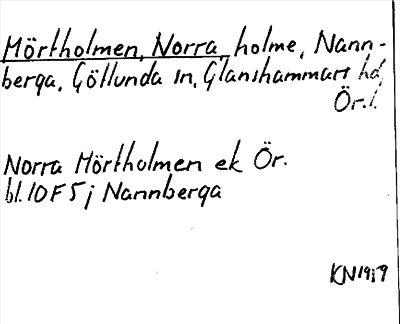 Mörtholmen, Norra, holme, Nann-
berga, Götlunda sn, Glanshammars hd,
Ör. l.
Norra Mörtholmen ek Ör.
bl. 10 F 5 j Nannberga